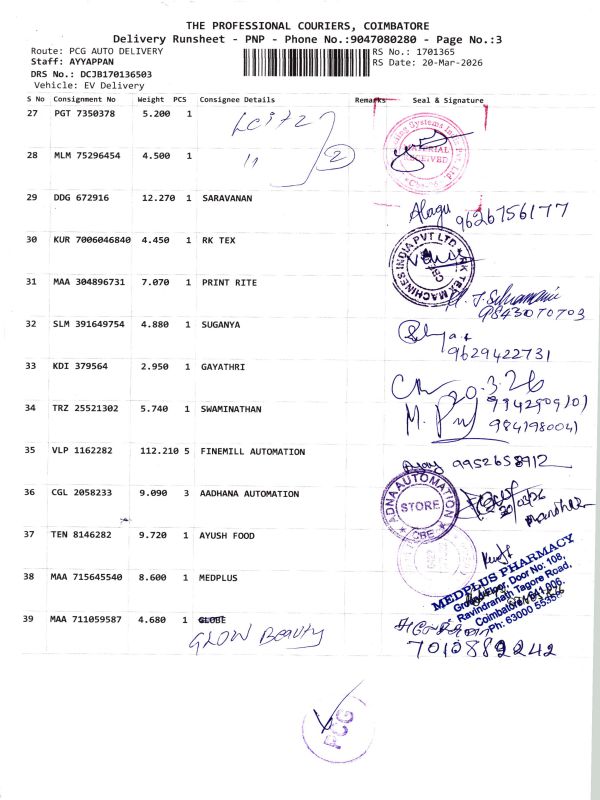 THE PROFESSIONAL COURIERS, COIMBATORE
Delivery Runsheet - PNP - Phone No.:9047080280 - Page No.:3
Route: PCG AUTO DELIVERY
RS No.: 1701365
Staff: AYYAPPAN
RS Date: 20-Mar-2026
DRS No.: DCJB170136503
Vehicle: EV Delivery
S No Consignment No Weight PCS Consignee Details Remarks Seal & Signature
27 PGT 7350378 5.200 1
28 MLM 75296454 4.500 1 11 2
RECEIVED
29 DDG 672916 12.270 1 SARAVANAN
Alagu 9626756177
30 KUR 7006046840 4.450 1 RK TEX
RK TEX MACHINES INDIA PVT LTD
31 MAA 304896731 7.070 1 PRINT RITE
9843070703
32 SLM 391649754 4.880 1 SUGANYA
9629422731
33 KDI 379564 2.950 1 GAYATHRI
20.3.26
34 TRZ 25521302 5.740 1 SWAMINATHAN
9841980041
35 VLP 1162282 112.210 5 FINEMILL AUTOMATION
Ajay 9952658912
36 CGL 2058233 9.090 3 AADHANA AUTOMATION
AUTOMATION
STORE
CBE
Manohar
37 TEN 8146282 9.720 1 AYUSH FOOD
38 MAA 715645540 8.600 1 MEDPLUS
MEDPLUS PHARMACY
Ground Floor, Door No: 108,
Ravindranath Tagore Road,
Coimbatore - 641 006.
Ph: 63000 5535
39 MAA 711059587 4.680 1 GLOBE
GLOW Beauty
7010882242
PCG